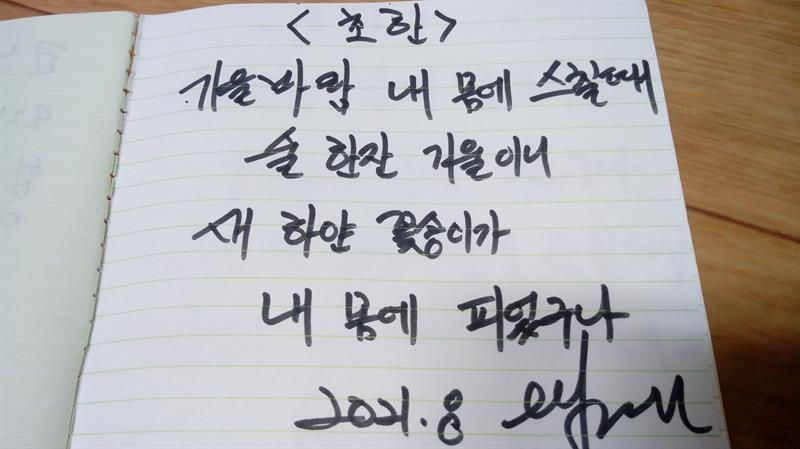 <초한>
가을바람 내 몸에 스칠때
술 한잔 기울이니
새 하얀 꽃송이가
내 몸에 피었구나
2021.8